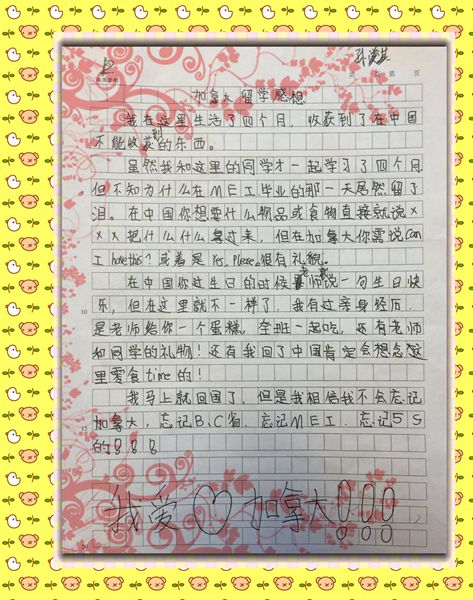 加拿大留学感想
我在这里生活了四个月，收获到了在中国
不能收获到的东西。
虽然我和这里的同学才一起学习了四个月
但不知为什么在MEI毕业的那一天居然留了
泪。在中国你想要什么物品或食物直接就说x
x x 把什么什么拿过来，但在加拿大你需说can
I have this？或着是Yes, Please。很有礼貌。
在中国你过生日的时候老师说一句生日快
乐，但在这里就不一样了，我有过亲身经历，
是老师给你一个蛋糕，全班一起吃，还有老师
和同学的礼物！还有我回了中国肯定会想念这
里零食time的！
我马上就回国了，但是我相信我不会忘记
加拿大，忘记B.C省，忘记MEI，忘记5S
的！！！
我爱♡加拿大！！！